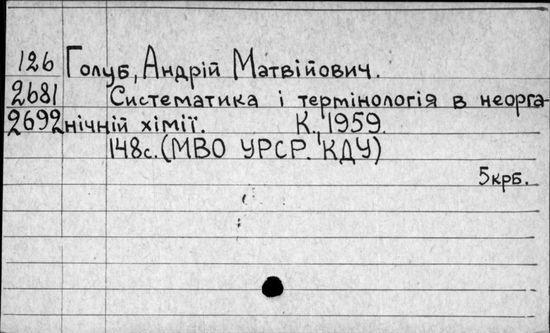 126 Голуб, Андрій Матвійович.
2681 Систематика і термінологія в неорга-
2692 нічній хімії. К., 1959.
148с. (МВО УРСР. КДУ)
5крб.